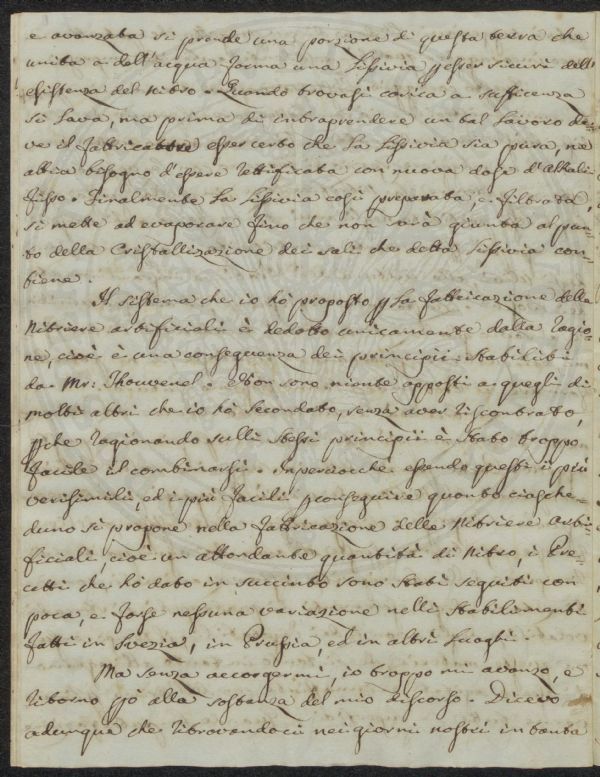 e avanzata si prende una porzione di questa terra che
unita a dell'acqua forma una Lissivia p esser sicuri dell'
esistenza del Nitro. Quando trovasi carica a sufficenza
si lava, ma prima di intraprendere un tal lavoro de=
ve il fabbricatore esser certo che la Lissivia sia pura, ne
abbia bisogno d'essere rettificata con nuova dose d'Alkali
fisso. Finalmente la Lissivia così preparata, e filtrata,
si mette ad evaporare fino che non sarà giunta al pun=
to della Cristallizazione dei sali che detta Lissivia con=
tiene.
Il sistema che io hò proposto p la fabbricazione delle
Nitriere artificiali è dedotto unicamente dalla ragio=
ne, cioè è una conseguenza dei principii stabiliti
da Mr: Thouvenel. Non sono niente opposti a quegli di
molti altri che io hò secondato, senza aver riscontrato,
pche ragionando sulli stessi principii è stato troppo
facile il combinarsi. Imperciocchè essendo questi i più
verisimili, ed i più facili p conseguire quanto ciasche=
duno si propone nella fabbricazione delle Nitriere arti=
ficiali, cioè un abbondante quantità di Nitro, i Pre=
cetti che hò dato in succinto sono stati seguiti con
poca, e forse nessuna variazione nelli stabilimenti
fatti in Svezia, in Prussia, ed in altri Luoghi.
Ma senza accorgermi, io troppo mi avanzo, e
ritorno pò alla sostanza del mio discorso. Dicevo
adunque che ritrovandoci nei giorni nostri in tanta